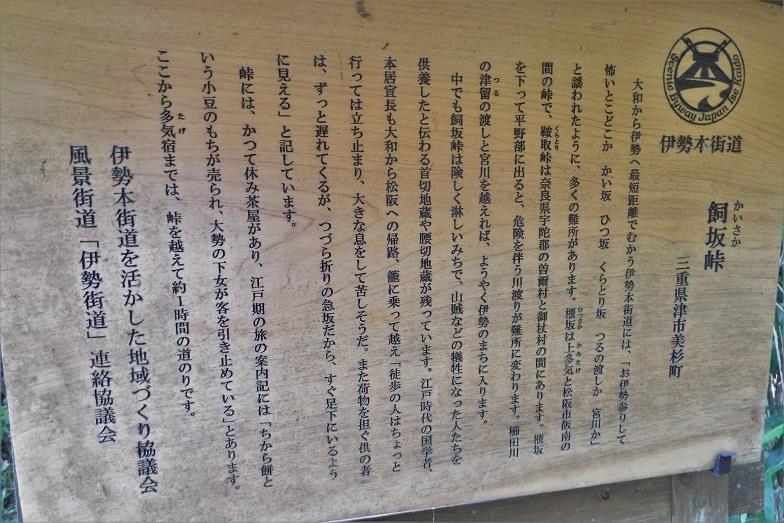 Scenic Byway Japan Ise Kaido
伊勢本街道
飼坂峠
かいさか
三重県津市美杉町
大和から伊勢へ最短距離でむかう伊勢本街道には、「お伊勢参りして
怖いとこどこか　かい坂　ひつ坂　くらとり坂　つるの渡しか　宮川か」
と謡われたように、多くの難所があります。櫃坂は上多気と松阪市飯南の
ひつさか
かみたげ
間の峠で、鞍取峠は奈良県宇陀郡の曽爾村と御杖村の間にあります。櫃坂
くらとり
を下って平野部に出ると、危険を伴う川渡りが難所に変わります。櫛田川
の津留の渡しと宮川を越えれば、ようやく伊勢のまちに入ります。
つる
中でも飼坂峠は険しく淋しいみちで、山賊などの犠牲になった人たちを
供養したと伝わる首切地蔵や腰切地蔵が残っています。江戸時代の国学者、
本居宣長も大和から松阪への帰路、籠に乗って越え「徒歩の人はちょっと
行っては立ち止まり、大きな息をして苦しそうだ。また荷物を担ぐ供の者
は、ずっと遅れてくるが、つづら折りの急坂だから、すぐ足下にいるよう
に見える」と記しています。
峠には、かつて休み茶屋があり、江戸期の旅の案内記には「ちから餅と
いう小豆のもちが売られ、大勢の下女が客を引き止めている」とあります。
ここから多気宿までは、峠を越えて約1時間の道のりです。
たげ
伊勢本街道を活かした地域づくり協議会
風景街道「伊勢街道」連絡協議会